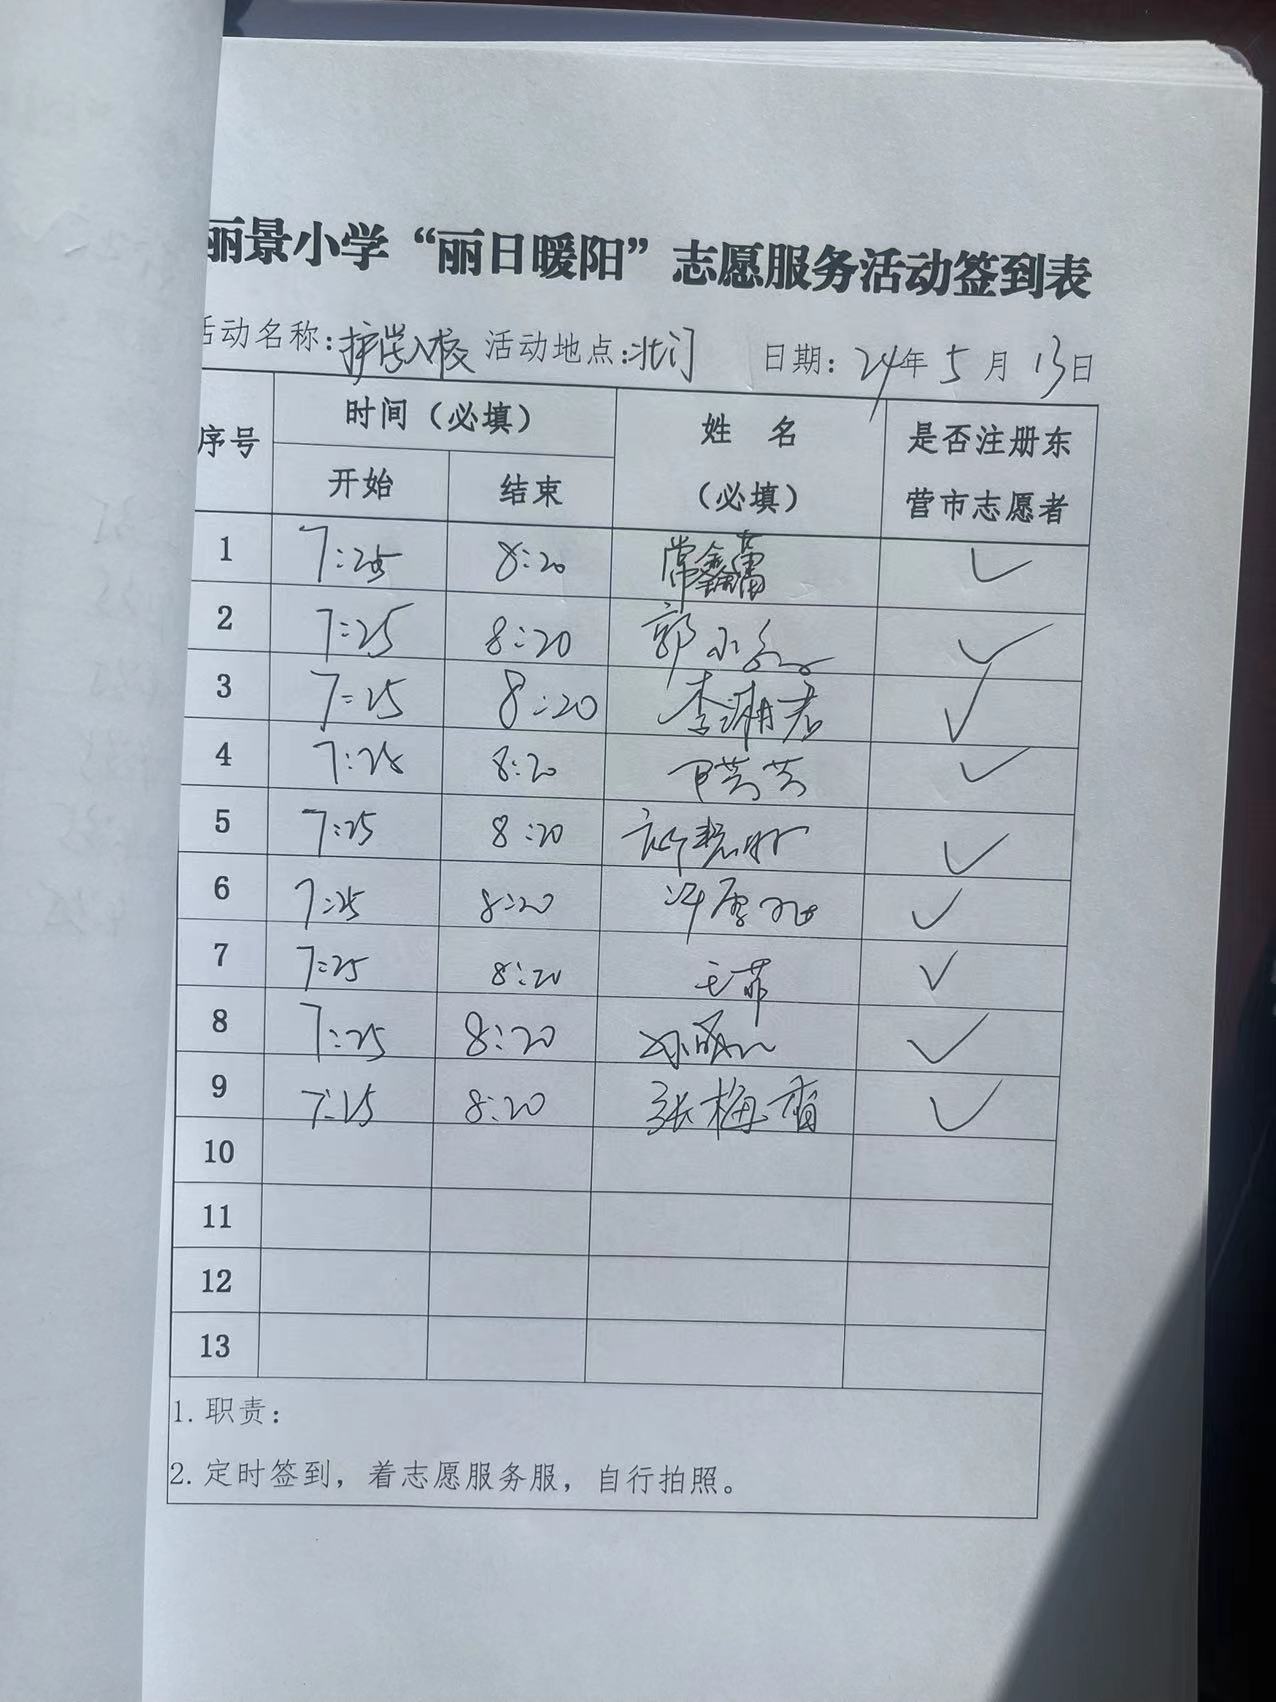 丽景小学“丽日暖阳”志愿服务活动签到表
活动名称:护学入校 活动地点:北门 日期:24年5月13日
序号 时间（必填） 姓 名（必填） 是否注册东营市志愿者
开始 结束
1 7:25 8:20 常鑫蕾 ✓
2 7:25 8:20 郭 ✓
3 7:25 8:20 李湘君 ✓
4 7:25 8:20 芸芸 ✓
5 7:25 8:20 ✓
6 7:25 8:20 ✓
7 7:25 8:20 王菲 ✓
8 7:25 8:20 孙 ✓
9 7:25 8:20 张梅香 ✓
10
11
12
13
1.职责:
2.定时签到，着志愿服务服，自行拍照。